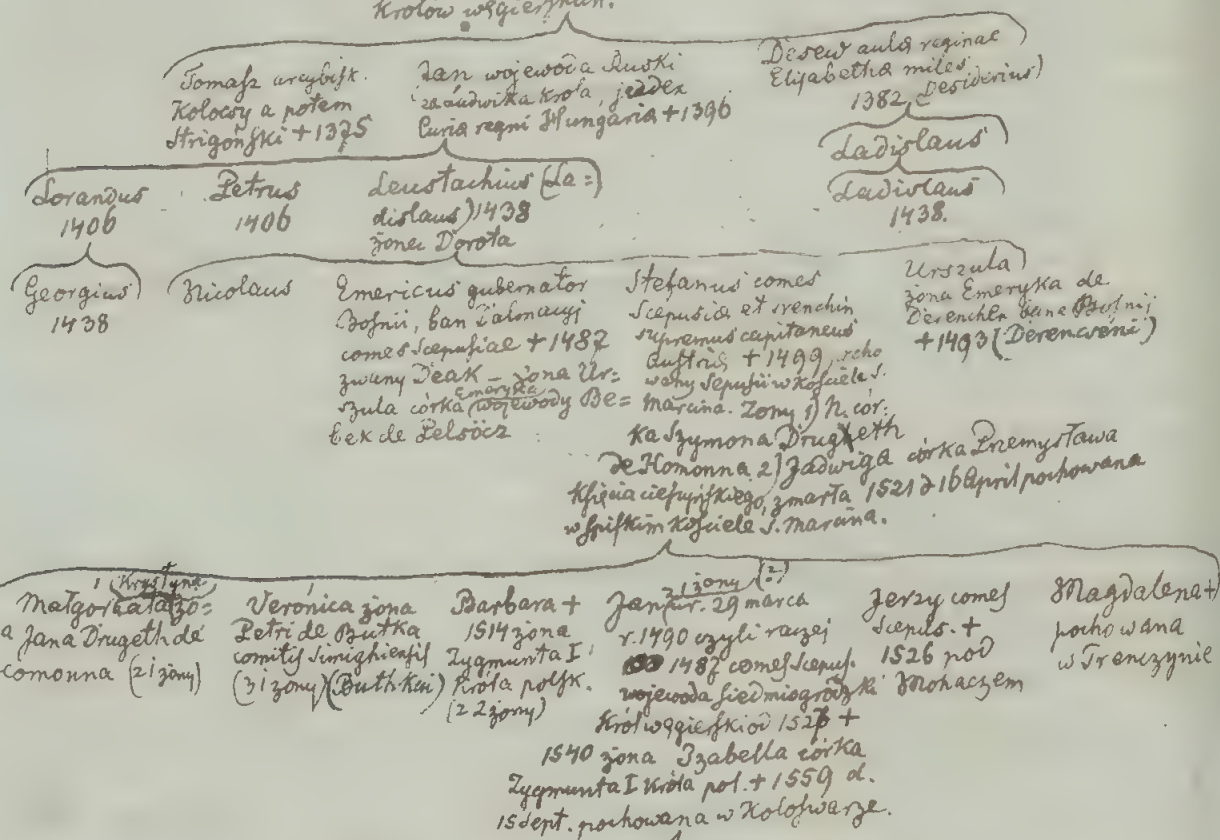 Królow węgierskich.
Tomasz arcybisk.
Kolocsy a potem
Strigoński + 1375
Jan wojewoda Ruski
za Ludwika Krola, judex
Curiæ regni Hungariæ + 1396
Desew aulæ reginae
Elisabethæ miles
1382 Desiderius)
Ladislaus
Lorandus
1406
Petrus
1406
Leustachius (La=
dislaus) 1438
żona Dorota
Ladislaus
1438.
Georgius
1438
Nicolaus
Emericus gubernator
Bosnii, ban Dalmacyi
comes Scepusiae + 1487
zwany Deak – żona Ur=
szula córka Emeryka wojewody Be=
bek de Pelsöcz
Stefanus comes
Scepusiæ et Trenchin
supremus capitaneus
Austriæ + 1499, scho
wany Sepusii w kościele S.
Marcina. Żony 1) N. cór:
ka Szymona Drugeth
de Homonna 2) Jadwiga córka Przemysława
Księcia cieszyńskiego, zmarła 1521 d 16 April pochowana
w spiskim kościele S. Marcina.
Urszula
żona Emeryka de
Derenchen bana Bosnij
+ 1493 (Derencseni)
1 Krystyna
Małgorzata żo=
a Jana Drugeth de
omonna (2 1 żony)
Veronica żona
Petri de Butka
comitis Simighiensis
(3 1 żony) (Buthkai)
Barbara +
1514 żona
Zygmunta I
Króla polsk.
(2 2 żony)
2 1 żony (?)
Jan ur. 29 marca
r. 1490 czyli raczej
1487 comes Scepus.
wojewoda siedmiogrodzki
Król węgierski od 1526 +
1540 żona Izabella córka
Zygmunta I Króla pol. + 1559 d.
15 Sept. pochowana w Kolosvarze.
Jerzy comes
Scepus. +
1526 pod
Mohaczem
Magdalena +
pochowana
w Trenczynie